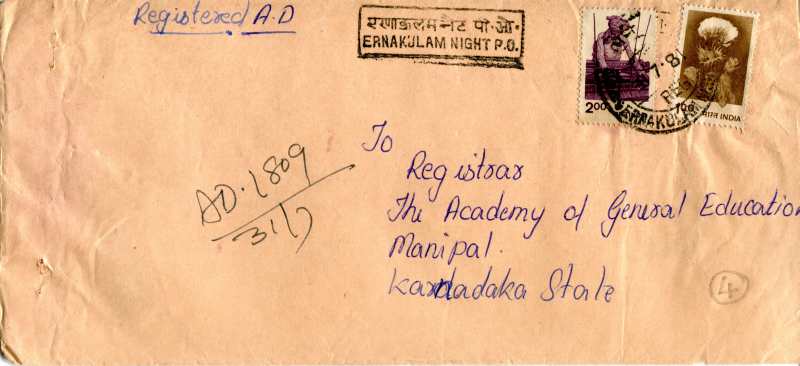 Registered A.D
एरणाकुलम नैट पो.ओ.
ERNAKULAM NIGHT P.O.
2.00
भारत INDIA
7.81
ERNAKULAM
AD.1809
31/7
To
Registrar
The Academy of General Education
Manipal.
Karnadaka State
4